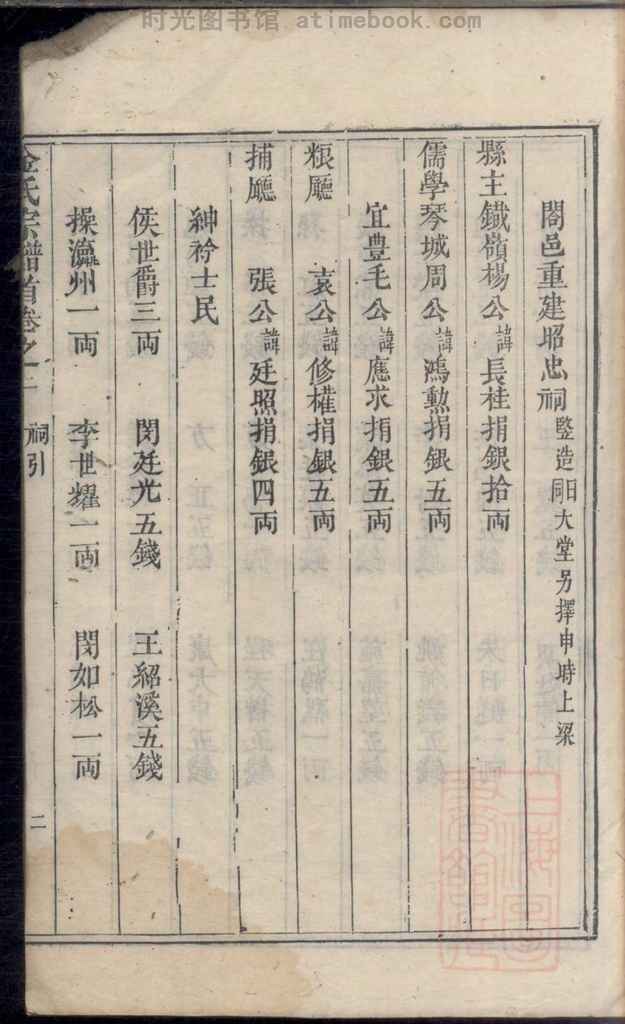 时光图书馆 atimebook.com
閤邑重建昭忠祠豎造日同大堂另擇申時上梁
縣主鐵嶺楊公諱長桂捐銀拾両
儒學琴城周公諱鴻勲捐銀五両
宜豊毛公諱應求捐銀五両
粮廳 袁公諱修權捐銀五両
捕廳 張公諱廷照捐銀四両
紳衿士民
侯世爵三両 閔廷光五錢 王紹溪五錢
操瀛州一両 李世耀一両 閔如松一両
金氏宗譜首卷之 祠引 二